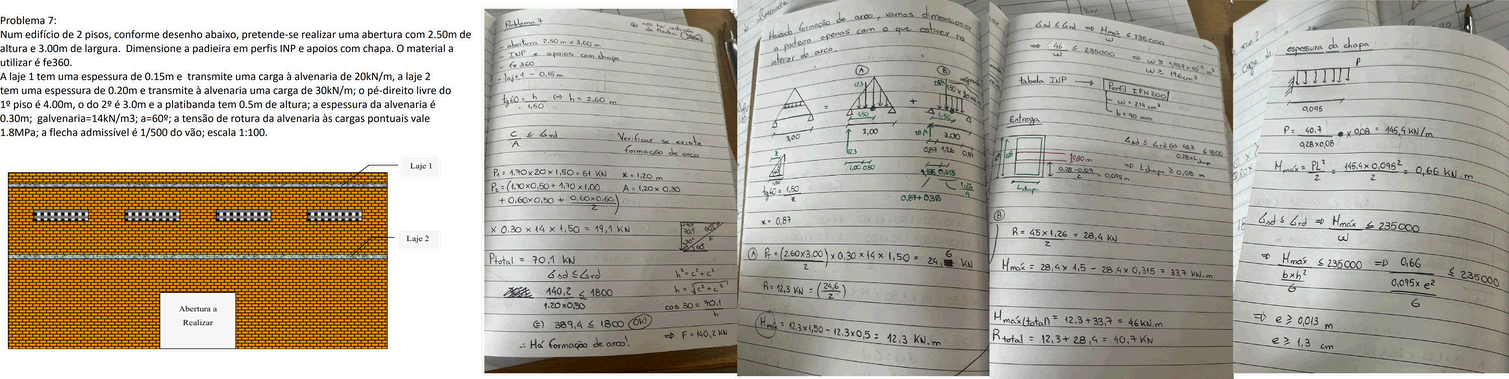 Problema 7:
Num edifício de 2 pisos, conforme desenho abaixo, pretende-se realizar uma abertura com 2.50m de
altura e 3.00m de largura. Dimensione a padieira em perfis INP e apoios com chapa. O material a
utilizar é fe360.
A laje 1 tem uma espessura de 0.15m e transmite uma carga à alvenaria de 20kN/m, a laje 2
tem uma espessura de 0.20m e transmite à alvenaria uma carga de 30kN/m; o pé-direito livre do
1º piso é 4.00m, o do 2º é 3.0m e a platibanda tem 0.5m de altura; a espessura da alvenaria é
0.30m; galvenaria=14kN/m3; a=60º; a tensão de rotura da alvenaria às cargas pontuais vale
1.8MPa; a flecha admissível é 1/500 do vão; escala 1:100.
Laje 1
Laje 2
Abertura a
Realizar
Problema 7
- abertura 2,50 m x 3,00 m
- INP e apoios com chapa
- fe 360
- laje 1 - 0,15 m
tg 60 = h / 1,50 ⇔ h = 2,60 m
C / A ≤ σrd
Verificar se existe
formação de arco
x = 1,20 m
A = 1,20 x 0,30
+ 0,60x0,50 + 0,60x0,60 / 2)
x 0.30 x 14 x 1,50 = 19,1 KN
Ptotal = 70,1 KN
σsd ≤ σrd
140,2 / 1,20x0,30 ≤ 1800
h² = c² + c²
h = √c² + c²
cos 30 = 70,1 / h
⇔ 389,4 ≤ 1800 OK!
⇒ F = 140,2 kN
∴ Há formação de arco!
Havendo formação de arco, vamos dimensionar
a padieira apenas com o que estiver no
interior do arco.
A
B
3,00
3,00
3,00
tg 60 = 1,50 / x
0,87 1,26 0,87
0,87 + 0,315
x = 0,87
A P = (2,60 x 3,00 / 2) x 0,30 x 14 x 1,50 = 24,6 KN
R = 12,3 KN = (24,6 / 2)
Mmáx = 12,3 x 1,50 - 12,3 x 0,5 = 12,3 KN.m
σsd ≤ σrd ⇒ Mmáx / ω ≤ 235000
⇒ 46 / ω ≤ 235000
ω ≥ 196 cm³
tabela INP → Perfil IPN 200
ω = 214 cm³
b = 90 mm
Entrega
σsd ≤ σrd
≤ 1800
⇒ Lchapa ≥ 0,08 m
= 0,095 m
Lchapa
B
R = 45 x 1,26 / 2 = 28,4 KN
Mmáx = 28,4 x 1,5 - 28,4 x 0,315 = 33,7 KN.m
Mmáx(total) = 12,3 + 33,7 = 46 KN.m
Rtotal = 12,3 + 28,4 = 40,7 KN
espessura da chapa:
P
0,095
P = 40.7 / 0,28 x 0,08 x 0,08 = 145,4 KN/m
Mmáx = PL² / 2 = 145.4 x 0,095² / 2 = 0,66 KN.m
σsd ≤ σrd ⇒ Mmáx / ω ≤ 235000
⇒ Mmáx / b x h² / 6 ≤ 235000 ⇒ 0,66 / 0,095 x e² / 6 ≤ 235000
⇒ e ≥ 0,013 m
e ≥ 1,3 cm